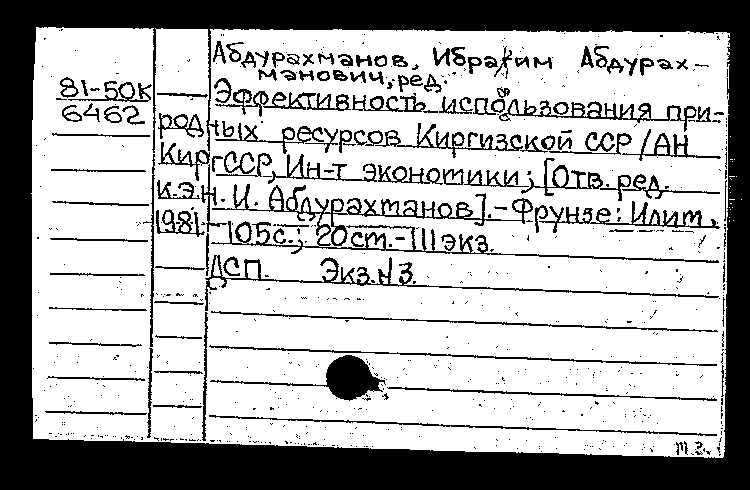 Абдурахманов, Ибрагим Абдурах-
манович, ред.
81-50К
6462
Эффективность использования при-
родных ресурсов Киргизской ССР / АН
КиргССР, Ин-т экономики; [Отв. ред.
к.э.н. И. Абдурахманов]. - Фрунзе: Илим,
1981. - 105с.; 20см. - 111 экз.
ДСП. Экз.N3.
т.з.